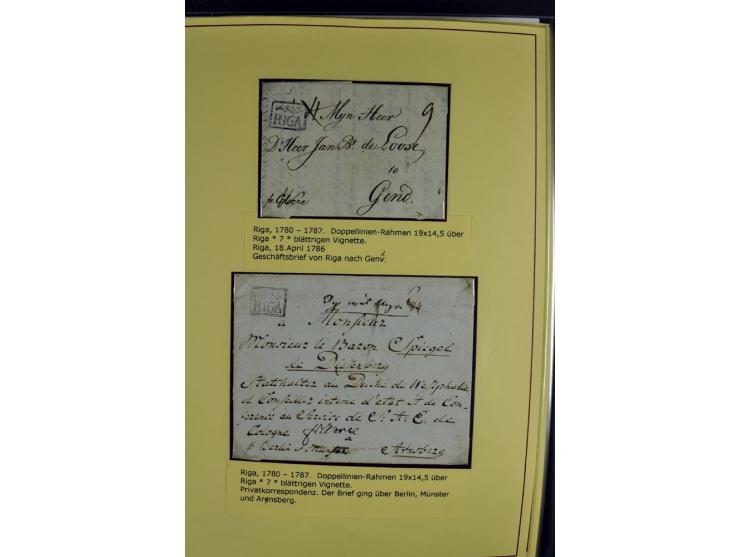 RIGA
Myn Heer
9
Dᵉ Heer Jan Bᵗ de Loose
to
Gend.
fr. Cologne
Riga, 1780 – 1787. Doppellinien-Rahmen 19x14,5 über
Riga * 7 * blättrigen Vignette.
Riga, 18.April 1786
Geschäftsbrief von Riga nach Gend.
RIGA
a Monsieur
Monsieur le Baron Spiegel
de Diesenberg
Statthalter du Duché de Wesphalie
et Conseiller intime d'etat et de Con-
ference au Service de S. A. E. de
Cologne
a
Arnsberg
Riga, 1780 – 1787. Doppellinien-Rahmen 19x14,5 über
Riga * 7 * blättrigen Vignette.
Privatkorrespondenz. Der Brief ging über Berlin, Münster
und Arensberg.